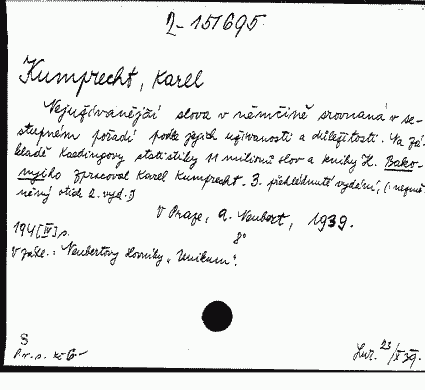 2-151695.
Kumprecht, Karel
Nejužívanější slova v němčině srovnaná v se-
stupném pořadí podle jejich užívanosti a důležitosti. Na zá-
kladě Kaedingovy statistiky 11 milionů slov a knihy H. Bako-
nyiho zpracoval Karel Kumprecht. 3. přehlédnuté vydání, (: nezmě-
něný otisk 2. vyd. :)
V Praze, A. Neubert, 1939.
8°
194 [IV] s.
V záhl.: Neubertovy slovníky „Unikum“.
S
Pr. s.
23/X 39.